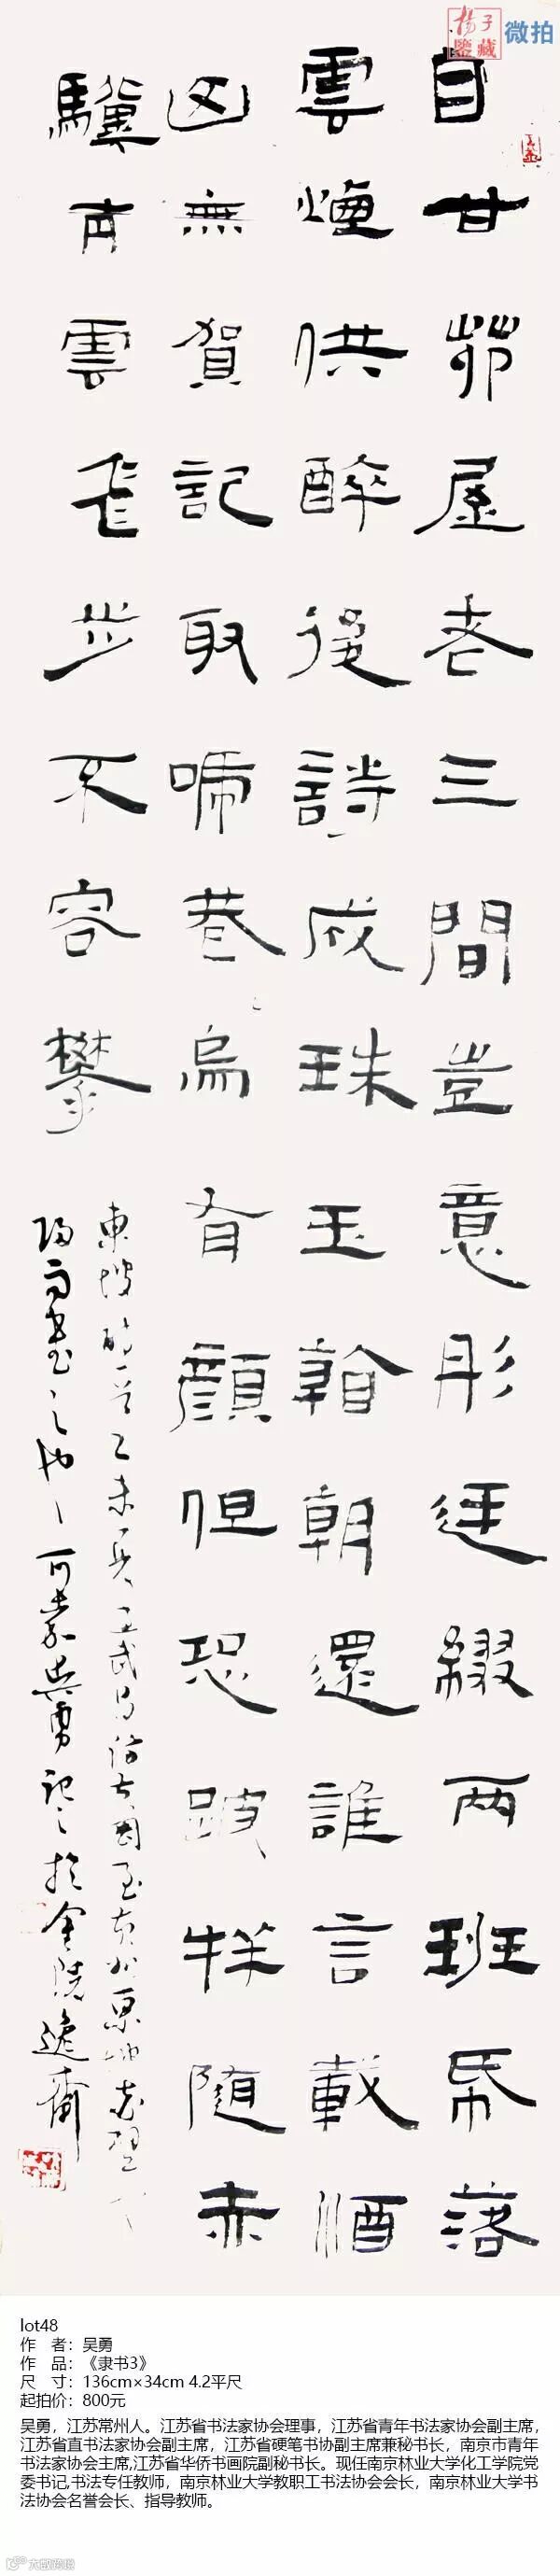 揚子鑒藏 微拍
自甘茆屋老三間豈意彤廷綴兩班帋落
雲煙供醉後詩成珠玉看朝還誰言載酒
山無賀記取啼巷烏有顏但恐跛牂隨赤
驥青雲飛步不容攀
東坡詩一首乙未夏
吳勇記之於金陵逸齋
lot48
作 者：吴勇
作 品：《隶书3》
尺 寸：136cm×34cm 4.2平尺
起拍价：800元
吴勇，江苏常州人。江苏省书法家协会理事，江苏省青年书法家协会副主席，
江苏省直书法家协会副主席，江苏省硬笔书协副主席兼秘书长，南京市青年
书法家协会主席,江苏省华侨书画院副秘书长。现任南京林业大学化工学院党
委书记,书法专任教师，南京林业大学教职工书法协会会长，南京林业大学书
法协会名誉会长、指导教师。